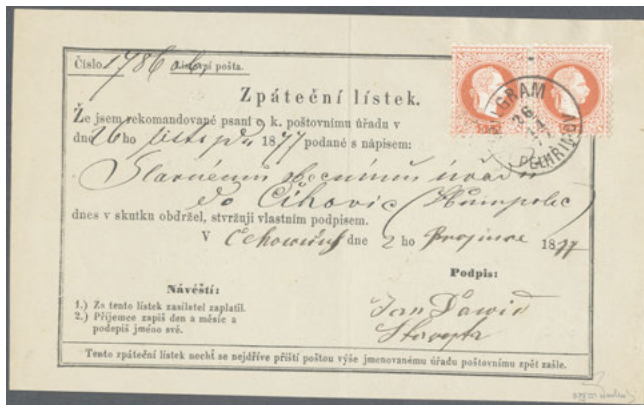 Číslo 1786 Listovní pošta.
Zpáteční lístek.
Že jsem rekomandované psaní c. k. poštovnímu úřadu v
dne 26 ho listop. 1877 podané s nápisem:
Slavnému obecnímu úřadu
do Čihovic (Humpolec)
dnes v skutku obdržel, stvrzuji vlastním podpisem.
V dne 2 ho Prosince 1877
Návěští:
1.) Za tento lístek zasilatel zaplatil.
2.) Příjemce zapíš den a měsíc a
podepiš jméno své.
Podpis:
Jan David
Starosta
Tento zpáteční lístek nechť se nejdříve příští poštou výše jmenovanému úřadu poštovnímu zpět zašle.
GRAM
26
PELHŘIMOV